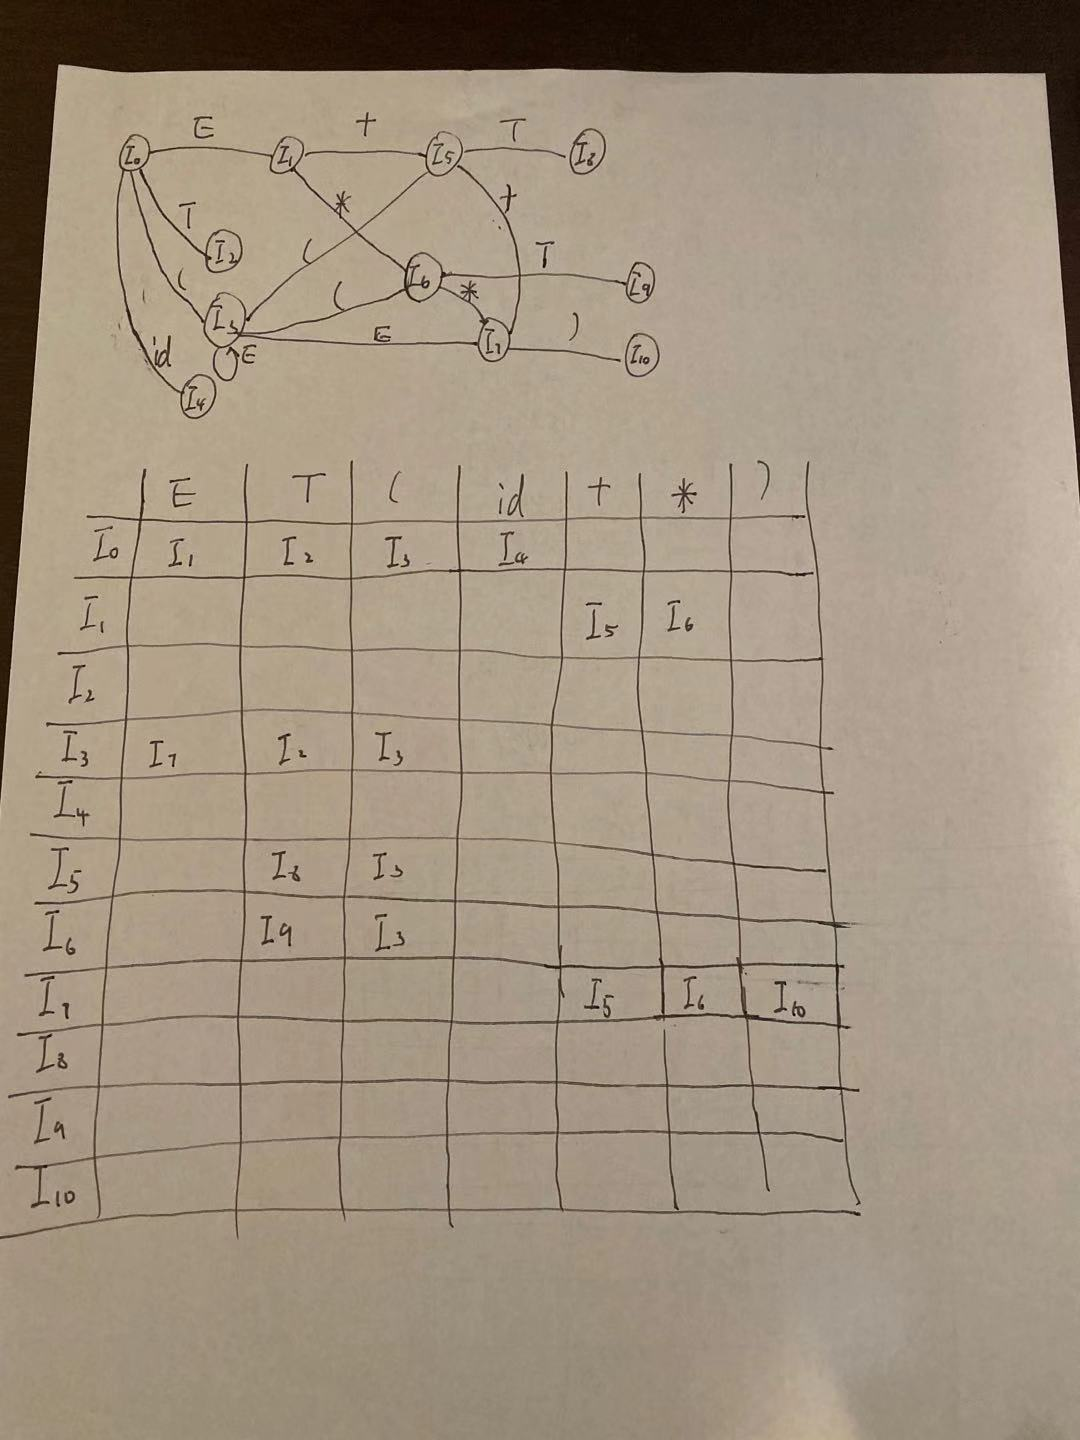 E + T
I₀ I₁ I₅ I₈
* +
T ( T
I₂ I₆ I₉
( ( *
I₃ E I₇ ) I₁₀
id E
I₄
E T ( id + * )
I₀ I₁ I₂ I₃ I₄
I₁ I₅ I₆
I₂
I₃ I₇ I₂ I₃
I₄
I₅ I₈ I₃
I₆ I9 I₃
I₇ I₅ I₆ I₁₀
I₈
I₉
I₁₀